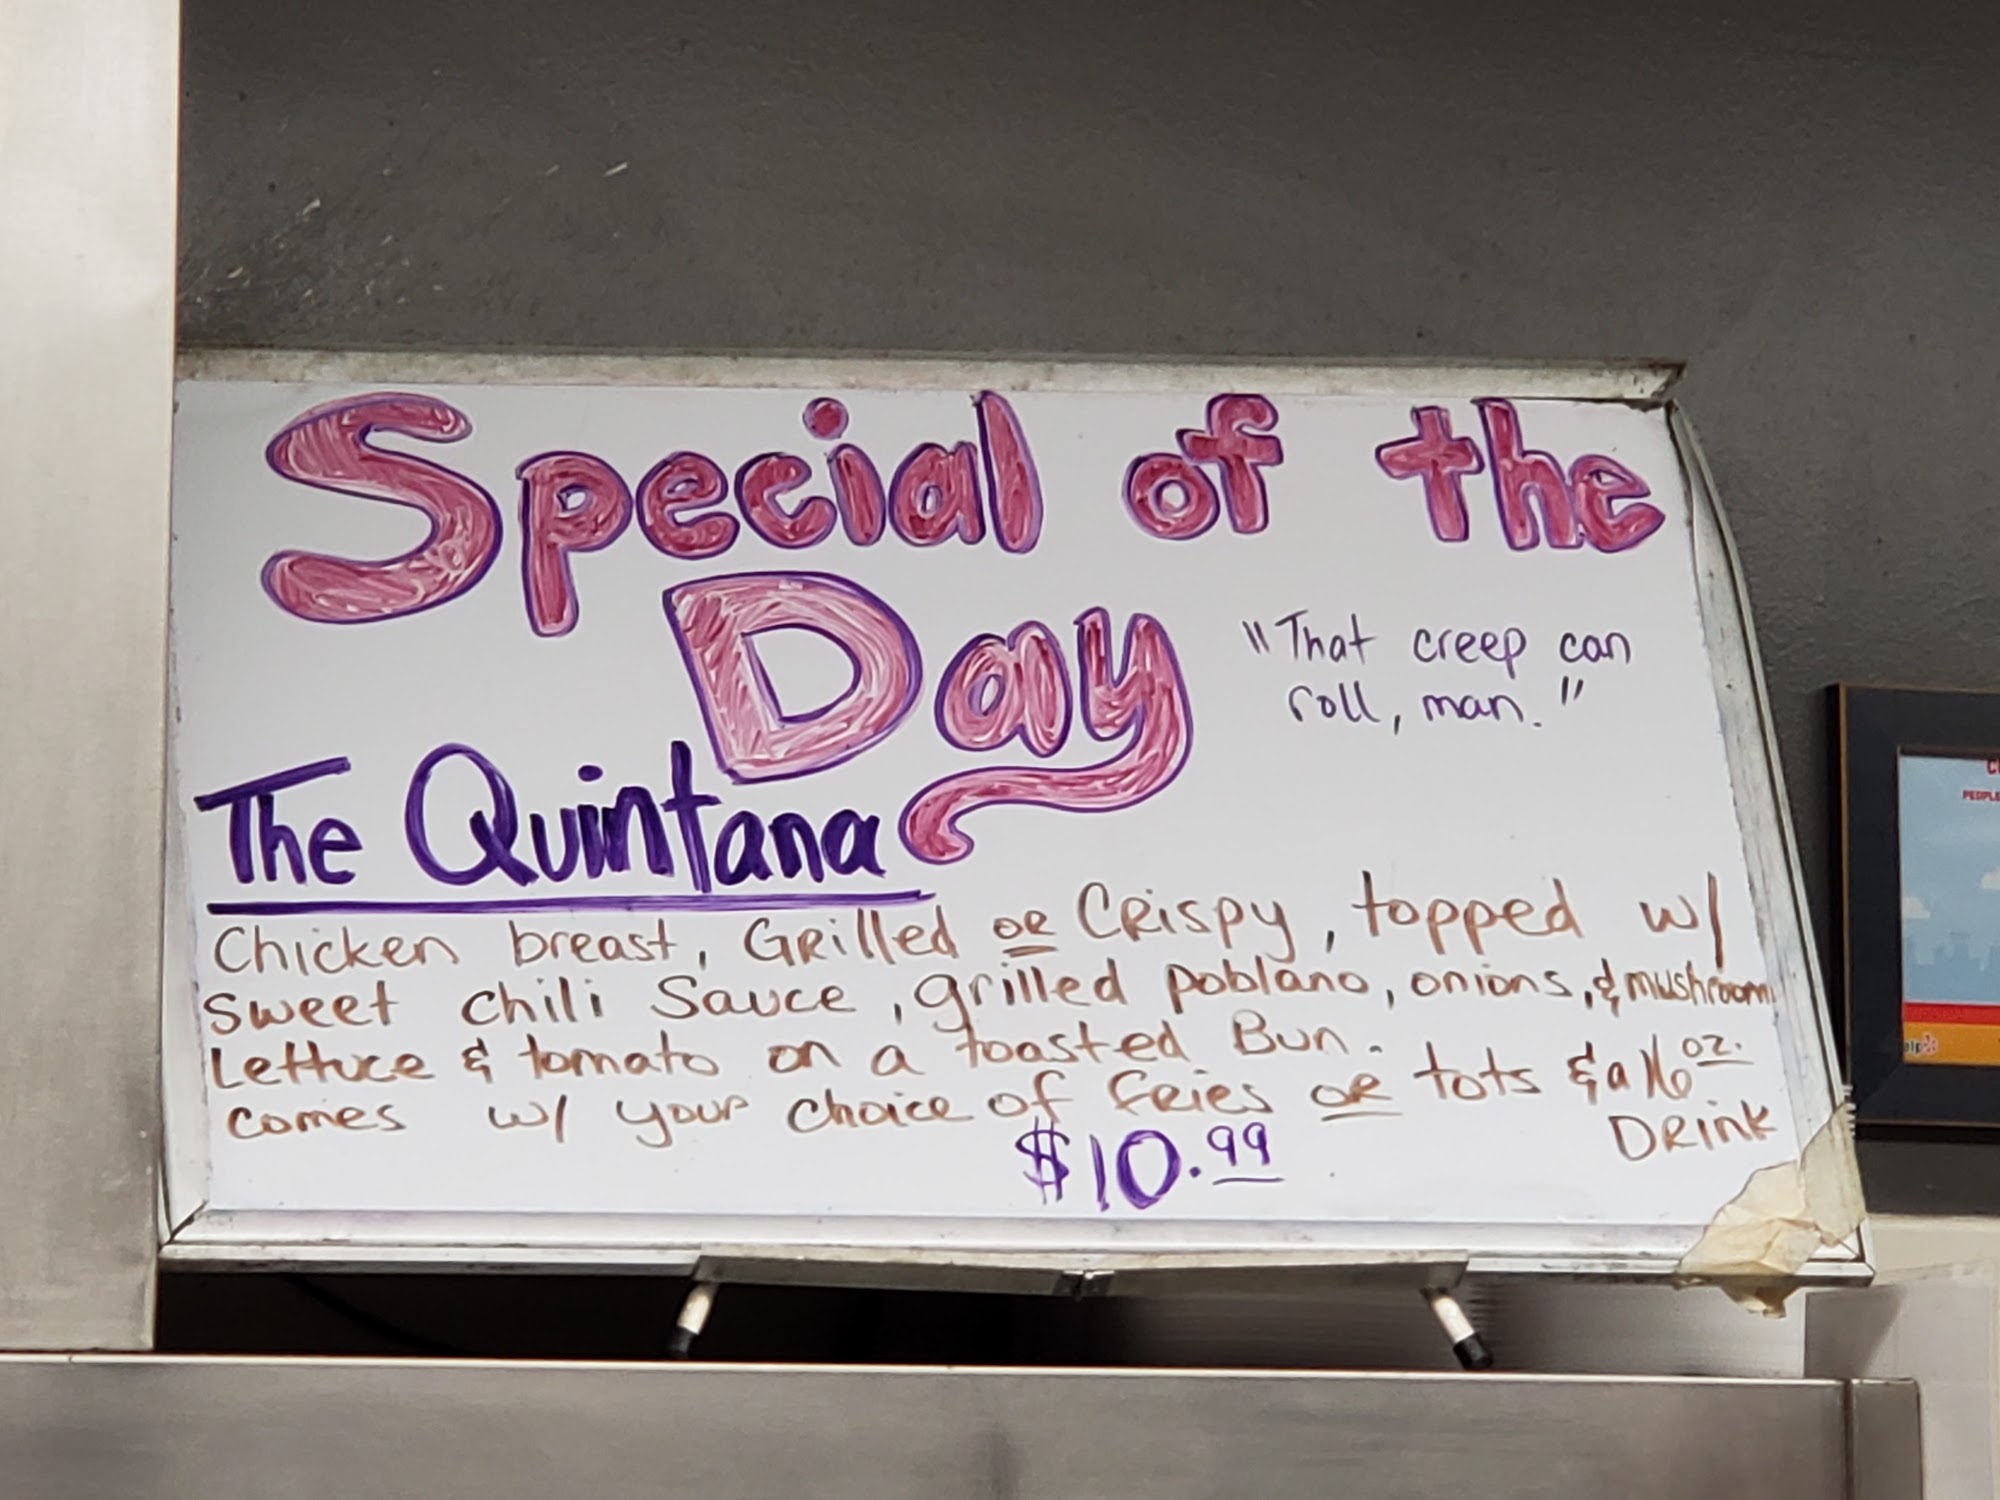 Special of the
Day
"That creep can
roll, man."
The Quintana
Chicken breast, GRilled oR CRispy, topped w/
sweet chili Sauce, grilled poblano, onions, & mushroom
Lettuce & tomato on a toasted Bun.
comes w/ your choice of fries oR tots & a 16 oz.
DRink
$10.99